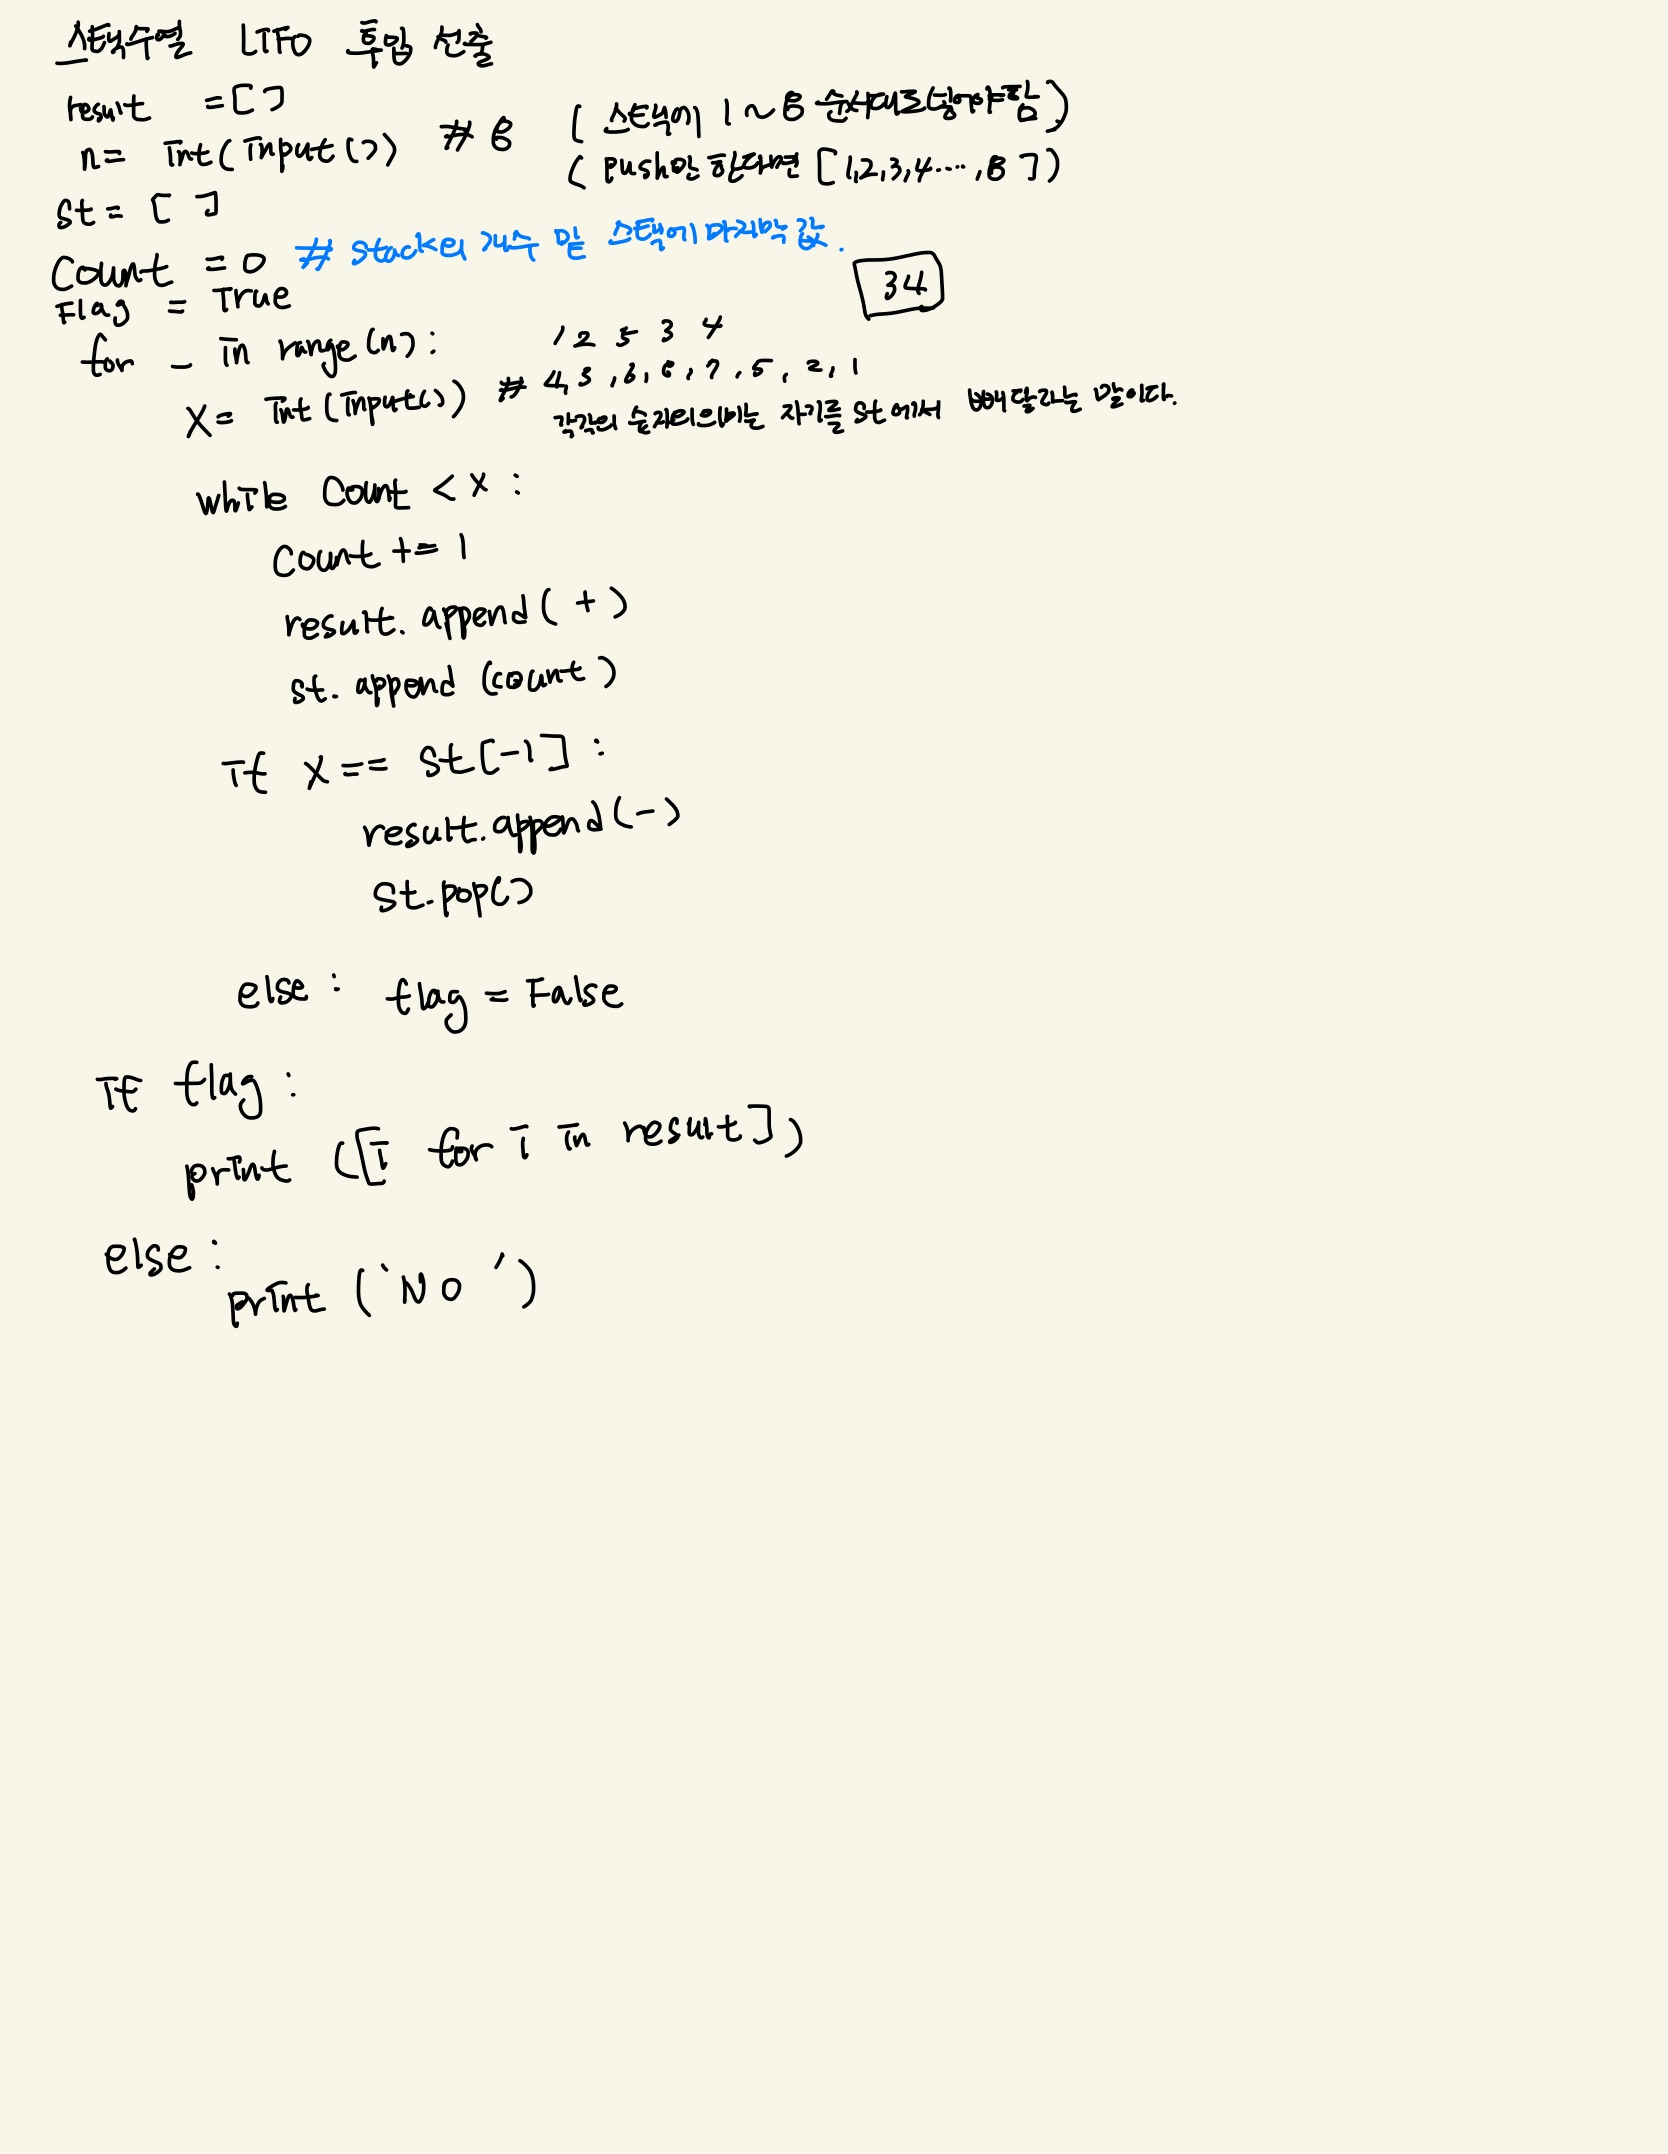 스택수열 LIFO 후입 선출
result = []
n = int(input()) # 8 (스택에 1~8 순서대로 넣어야함)
(push만 한다면 [1,2,3,4....,8])
st = [ ]
Count = 0 # stack의 개수 및 스택에 마지막 값.
Flag = True
34
for _ in range(n): 1 2 5 3 4
X = int(input()) # 4,3,6,8,7,5,2,1
각각의 숫자의 의미는 자기를 st에서 빼달라는 말이다.
while Count < X :
Count += 1
result.append( + )
st.append(count)
if X == st[-1] :
result.append(-)
St.pop()
else : flag = False
if flag :
print ([i for i in result])
else :
print ('NO')